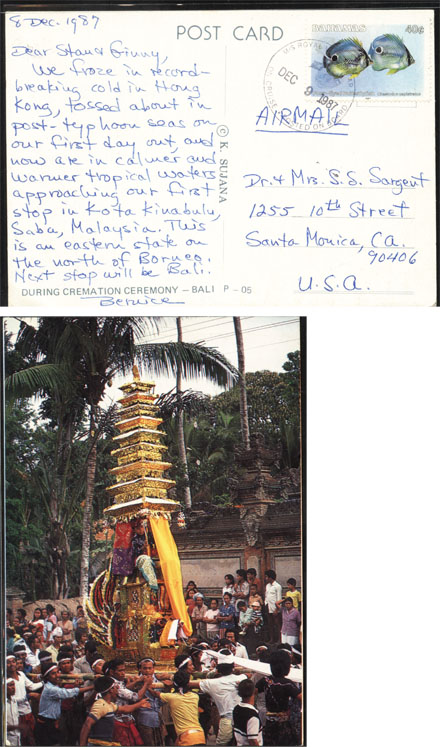 8 Dec. 1987
POST CARD
BAHAMAS 40¢
Dear Stan & Ginny,
We froze in record-
breaking cold in Hong
Kong, tossed about in
post-typhoon seas on
our first day out, and
now are in calmer and
warmer tropical waters
approaching our first
stop in Kota Kinabulu,
Saba, Malaysia. This
is an eastern state on
the north of Borneo.
Next stop will be Bali.
Bernice
DURING CREMATION CEREMONY – BALI P - 05
© K. SUJANA
M.S ROYAL
DEC 9 1987
AIRMAIL
Dr. & Mrs. S. S. Sargent
1255 10th Street
Santa Monica, CA.
90406
U.S.A.